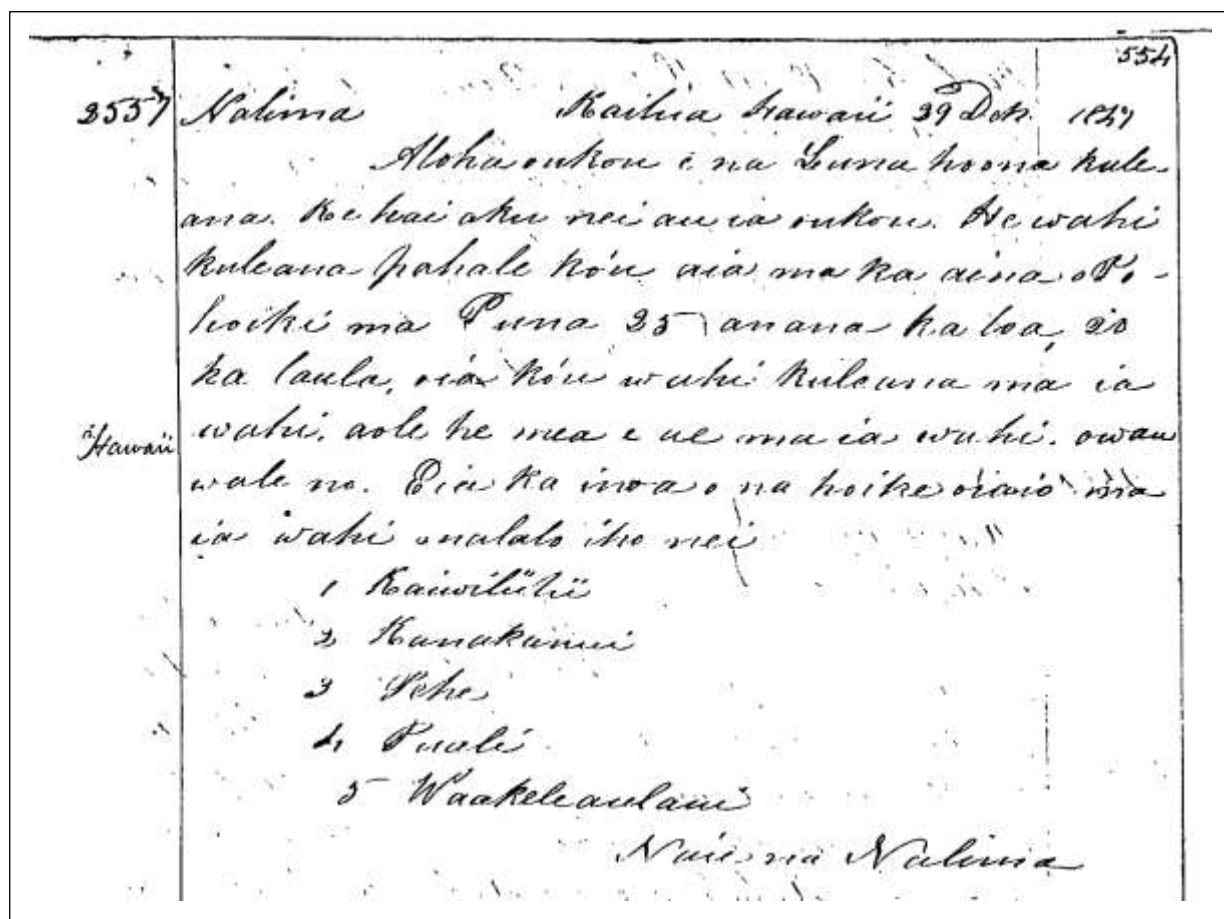 554
2557 Nalima Kailua Hawaii 29 Dek. 1847
Aloha oukou e na Luna hoona kule-
ana. Ke hai aku nei au ia oukou. He wahi
kuleana pahale ko'u aia ma ka aina o Po-
hoiki ma Puna 25 anana ka loa, 20
ka laula, oia ko'u wahi kuleana ma ia
Hawaii wahi. aole he mea e ae ma ia wahi. owau
wale no. Eia ka inoa o na hoike oiaio ma
ia wahi malalo iho nei
1 Kaiwiliilii
2 Kanakanui
3 Pehe
4 Puali
5 Waakeleaulani
Na'u na Nalima